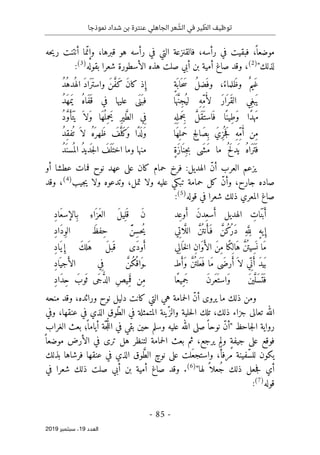 توظيف الطّير في الشّعر الجاهلي عنترة بن شداد نموذجا
موضعاً، فبقيت في رأسه، فالقنزعة التي في رأسه هو قبرها، وإنّما أنتنت ريحه
لذلك"(2)، وقد صاغ أمية بن أبي صلت هذه الأسطورة شعرا بقوله(3):
غَيْمٌ وَظَلماءٌ، وفَضلُ سَحَابَةٍ
إذ كانَ كَفَّنَ واستَرَادَ الهُدهُدُ
يَبغِي القَرَارَ لأمِّهِ لِيُجِنَّهَا
فَبَنَى عليها في قَفَاهُ يَمهَدُ
في الطَّيرِ يَحمِلُهَا ولاَ يَتَأَوَّدُ
منها وما اختَلَفَ الجديدُ المُسنَدُ
يزعم العرب أنّ الهديل: فرخ حمام كان على عهد نوح فمات عطشا أو
صاده جارح، وأنّ كل حمامة تبكي عليه ولا تمل، وتدعوه ولا يجيب(4)، وقد
صاغ المعري ذلك شعرا في قوله(5):
أَبَنَاتِ الهديلِ أَسعِدنَ أوعِد
نَ قَلِيلَ العَزَاءِ بِالإسعَادِ
إيهِ لِلَّهِ دَرُّكُنَّ فَأنتُنَّ
اللَّوَاتِي يُحسِنَّ حِفظَ الوِدَادِ
مَا نَسِيتُنَّ هَالِكًا مِنَ الأوَانِ الخَالِي
أَودَى مِن قَبلِ هَلكِ إِيَادِ
بَيدَ أَنِّي لاَ أَرضَى مَا فَعَلتُنَّ
وَأَطوَاقُكُنَّ فِي الأَجيَادِ
فَتَسَلَّبنَ وَاستَعِرنَ جَمِيعًا
مِن قَمِيصِ الدُّجَى ثَوبَ حِدَادِ
ومن ذلك ما يروى أنّ الحمامة هي التي كانت دليل نوح ورائده، وقد منحه
الله تعالى جزاء ذلك، تلك الحلية والزّينة المتمثلة في الطّوق الذي في عنقها، وفي
رواية الجاحظ "أنّ نوحاً صلى الله عليه وسلم حين بقي في اللّجّة أياماً، بعث الغراب
فوقع على جيفة ولم يرجع، ثم بعث الحمامة لتنظر هل ترى في الأرض موضعاً
يكون للسّفينة مرفأ، واستجعلت على نوح الطّوق الذي في عنقها فرشاها بذلك
أي فجعل ذلك جُعلاً لها"(6). وقد صاغ أمية بن أبي صلت ذلك شعرا في
قوله(7):
- 85 -
العدد 19، سبتمبر 2019